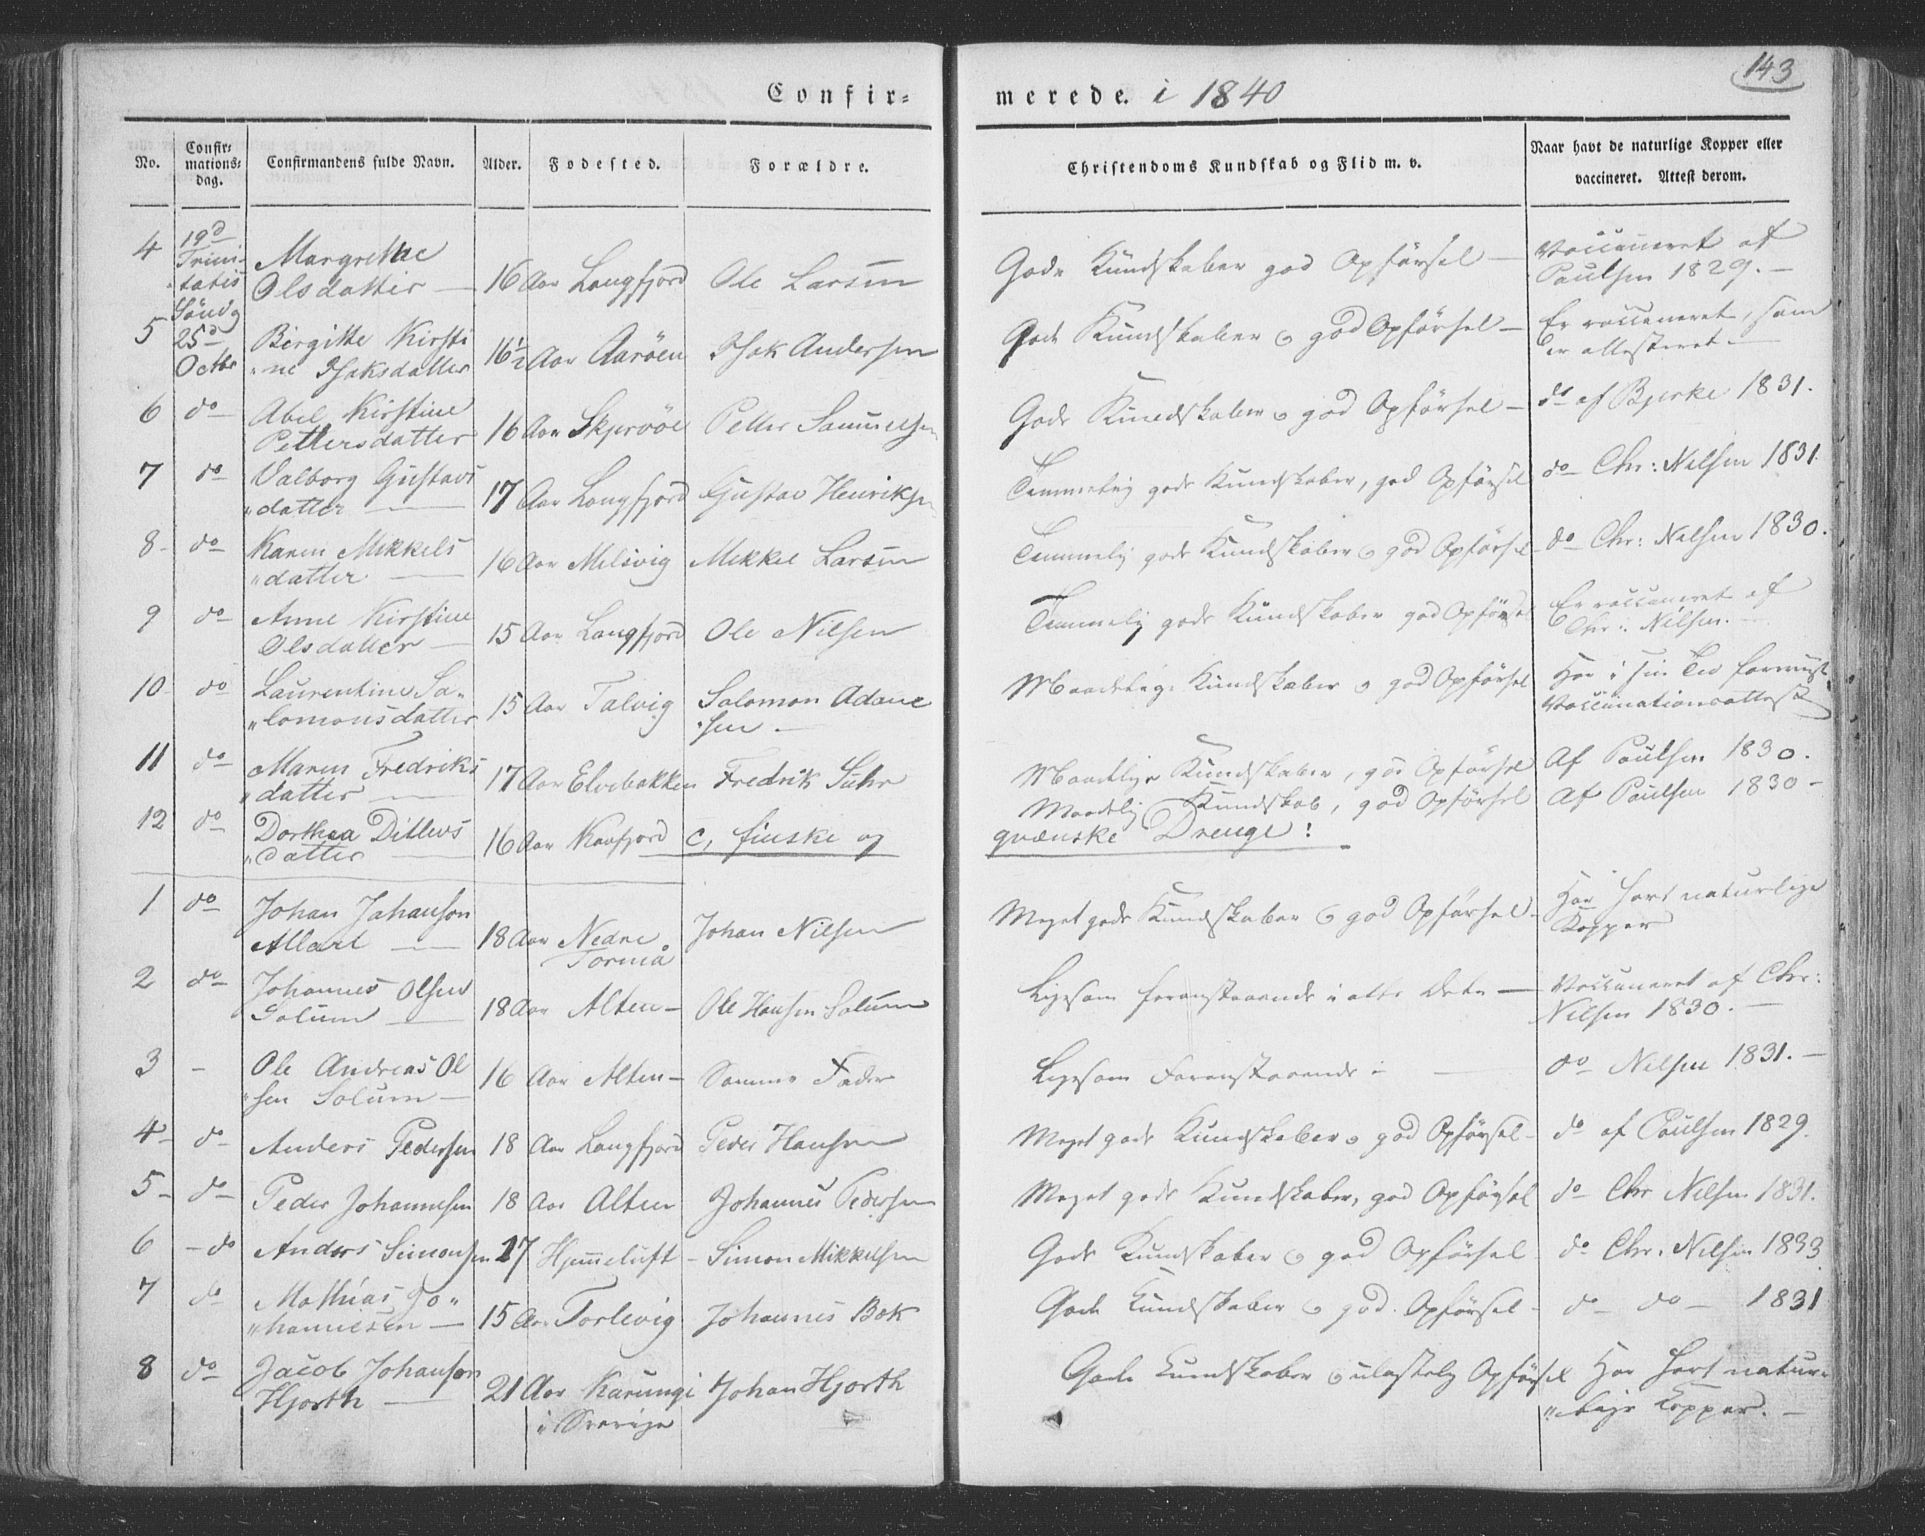 143
Confir= merede. i 1840
No. Confir= mations= dag. Confirmandens fulde Navn. Alder. Fodested. Forældre. Christendoms Kundskab og Flid m. v. Naar havt de naturlige Kopper eller vaccineret. Attest derom.
4 19d Trini- Margrethe Vaccineret af
tatis Olsdatter — 16 Aar Langfjord Ole Larsen Gode Kundskaber god Opførsel — Paulsen 1829. —
Søndg
5 25d Birgitte Kirsti 16½ Aar Aarøen Isak Andersen Gode Kundskaber og god Opførsel — Er vaccineret, som
Octbr "ne Isaksdatter er attesteret —
6 do Abel Kirstine
Pettersdatter 16 Aar Skjervöe Petter Samuelsen Gode Kundskaber og god Opførsel — do af Bjerke 1831.
7 do Valborg Gustavs
"datter — 17 Aar Langfjord Gustav Henriksen Temmelig gode Kundskaber, god Opførsel do Chr: Nilsen 1831.
8 do Karen Mikkels
"datter — 16 Aar Melsvig Mikkel Larsen Temmelig gode Kundskaber og god Opførsel do Chr: Nilsen 1830.
9 do Anne Kirstine Er vaccineret af
Olsdatter — 15 Aar Langfjord Ole Nilsen Temmelig gode Kundskaber god Opførsel Chr: Nilsen. —
10 do Laurentine Sa- Har i sin Tid forevist
"lomonsdatter 15 Aar Talvig Salomon Adam Maadelige Kundskaber og god Opførsel Vaccinationsattest
"sen —
11 do Maren Fredriks
"datter — 17 Aar Elvebakken Fredrik Suhr Maadelige Kundskaber, god Opførsel Af Paulsen 1830.
12 do Dorthea Ditlevs Maadelig Kundskab, god Opførsel Af Paulsen 1830 —
"datter — 16 Aar Kaafjord
c, finske og qvænske Drenge:
1 do Johan Johansen Har havt naturlige
— 18 Aar Nedre Johan Nilsen Meget gode Kundskaber og god Opførsel — Kopper
Torneå
2 do Johannes Olsen Vaccineret af Chr:
Solum — 18 Aar Alten — Ole Hansen Solum Ligesom foranstaaende i alle Dele — Nilsen 1830. —
3 - Ole Andreas Ol
"sen Solum — 16 Aar Alten — Samme Fader Ligesom Foranstaaende — do Nilsen 1831. —
4 do Anders Pedersen 18 Aar Langfjord Peder Hansen Meget gode Kundskaber og god Opførsel — do af Paulsen 1829.
5 do Peder Johannesen 18 Aar Alten Johannes Pedersen Meget gode Kundskaber, god Opførsel do Chr Nilsen 1831.
6 - do Anders Simonsen 17 Hjemeluft — Simon Mikkelsen Gode Kundskaber og god Opførsel do Chr. Nilsen 1833
7 do Mathias Jo"
"hannesen — 15 Aar Torlevig Johannes Bok Gode Kundskaber og god Opførsel — do — do — 1831
8 do Jacob Johansen
Hjorth — 21 Aar Karungi Johan Hjorth Gode Kundskaber og ulastelig Opførsel Har havt natur-
i Sverige "lige Kopper. —